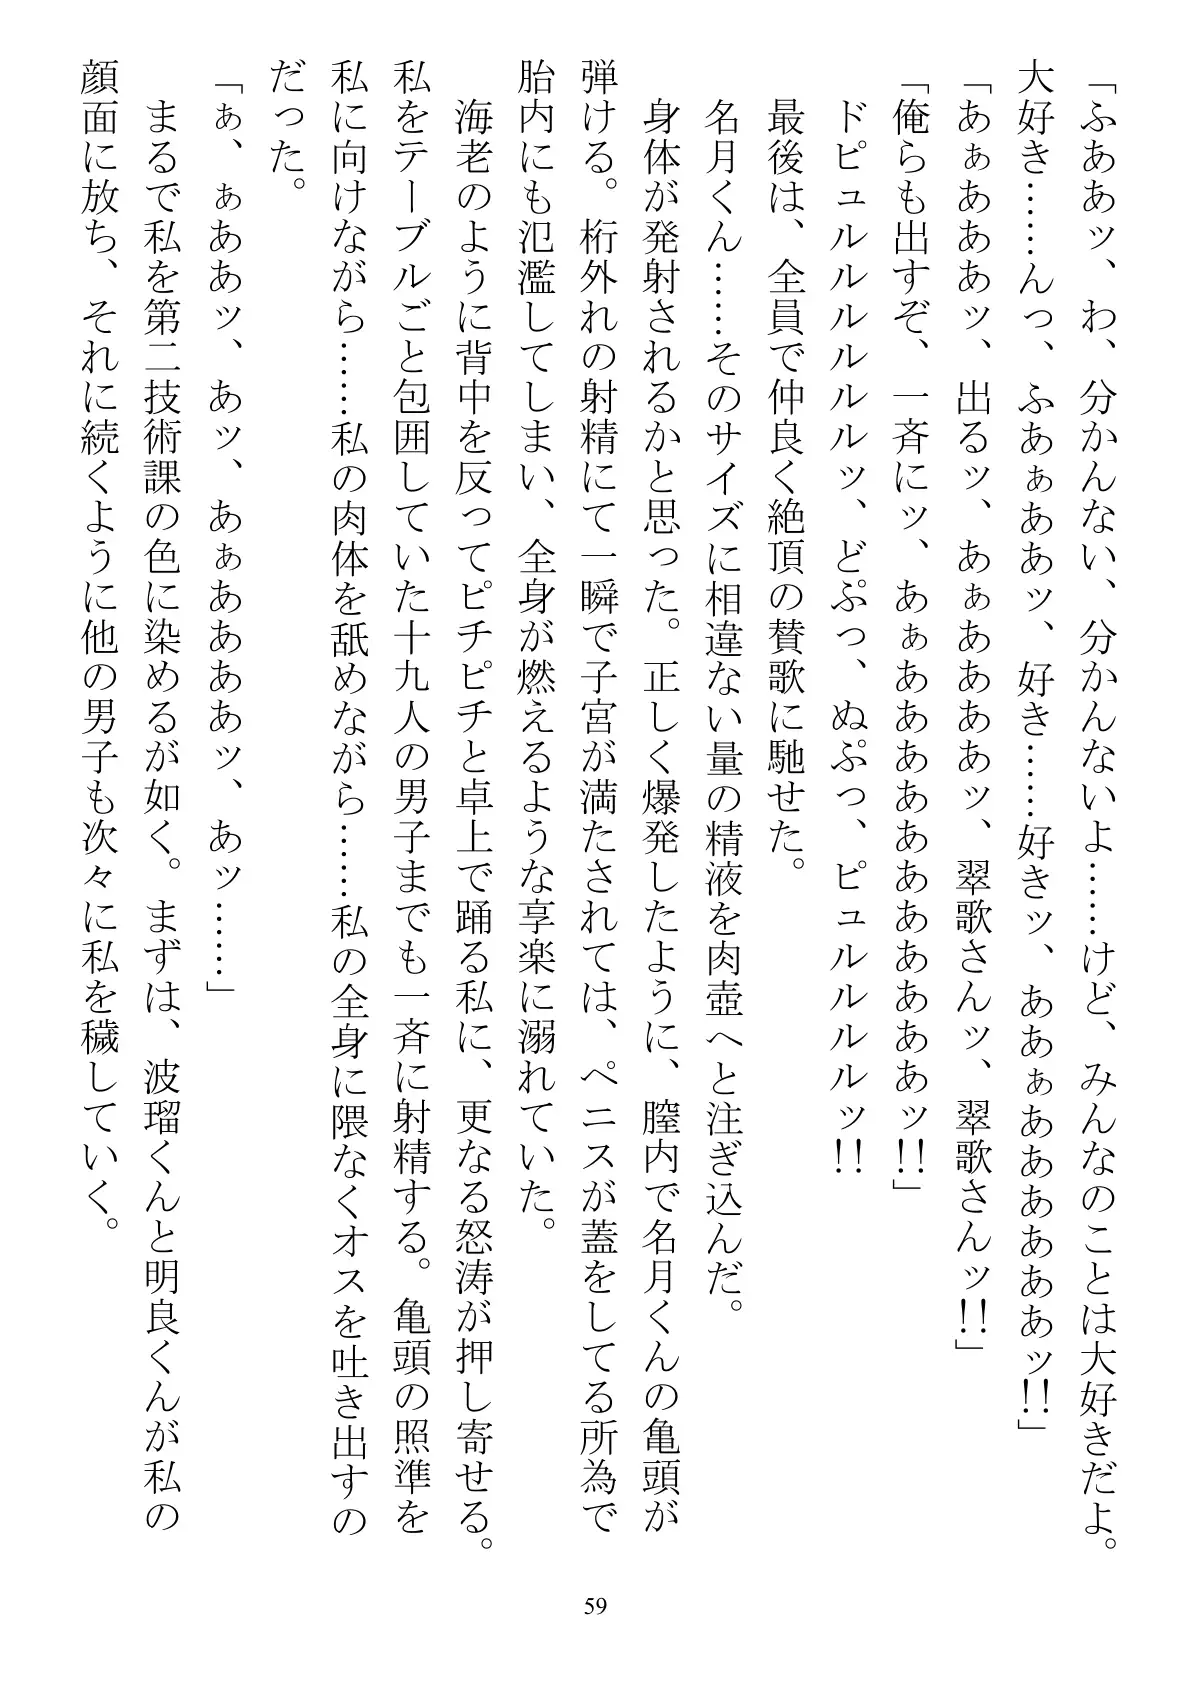 「ふああッ、わ、分かんない、分かんないよ……けど、みんなのことは大好きだよ。
大好き……んっ、ふあぁああッ、好き……好きッ、ああぁああああああッ!!」
「あぁあああッ、出るッ、あぁああああッ、翠歌さんッ、翠歌さんッ!!」
「俺らも出すぞ、一斉にッ、あぁああああああああああああッ!!」
ドピュルルルルルルッ、どぷっ、ぬぷっ、ピュルルルルッ!!
最後は、全員で仲良く絶頂の賛歌に馳せた。
名月くん……そのサイズに相違ない量の精液を肉壺へと注ぎ込んだ。
身体が発射されるかと思った。正しく爆発したように、膣内で名月くんの亀頭が
弾ける。桁外れの射精にて一瞬で子宮が満たされては、ペニスが蓋をしてる所為で
胎内にも氾濫してしまい、全身が燃えるような享楽に溺れていた。
海老のように背中を反ってピチピチと卓上で踊る私に、更なる怒涛が押し寄せる。
私をテーブルごと包囲していた十九人の男子までも一斉に射精する。亀頭の照準を
私に向けながら……私の肉体を舐めながら……私の全身に隈なくオスを吐き出すの
だった。
「ぁ、ぁああッ、あッ、あぁああああッ、あッ……」
まるで私を第二技術課の色に染めるが如く。まずは、波瑠くんと明良くんが私の
顔面に放ち、それに続くように他の男子も次々に私を穢していく。
59